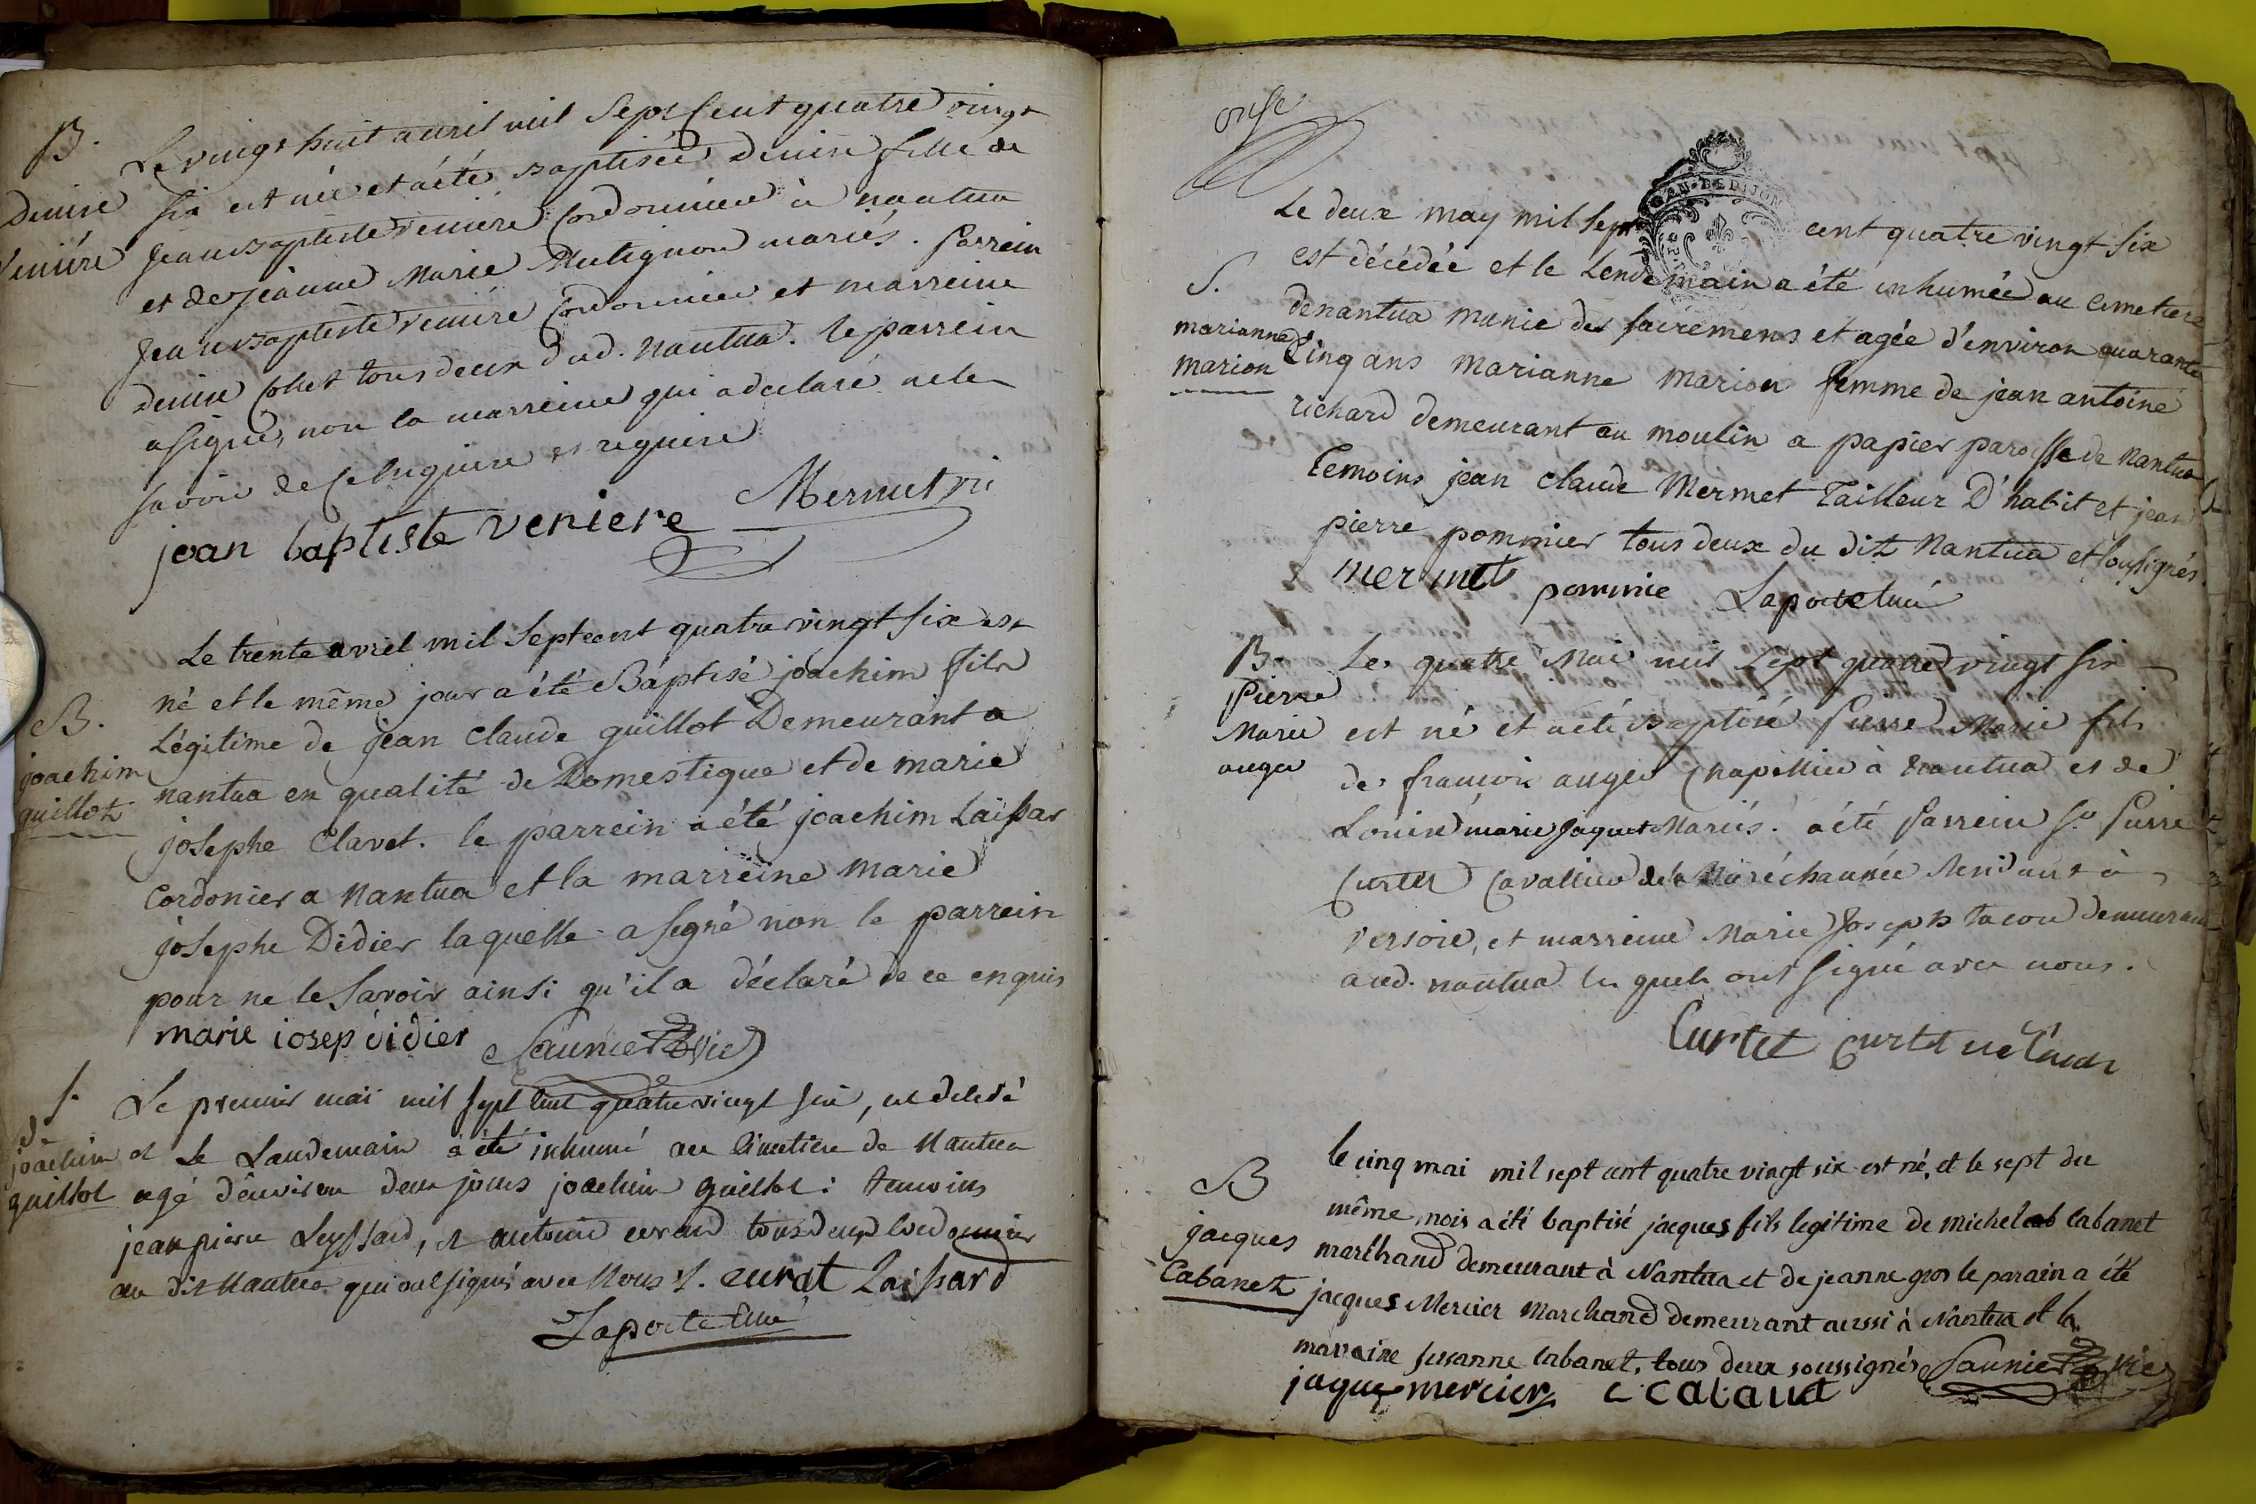 B.
Denise
Veniére
Le vingt huit avril mil Sept Cent quatre vingt
six est née et a été baptisée Denise fille de
Jean baptiste Veniére Cordonnier à nantua
et de jeanne Marie mariés. parrein
Jean baptiste Veniére Cordonnier et marreine
Denise Collet tous deux dud. Nantua. le parrein
a signé, non la marreine qui a declaré ne le
savoir de ce enquise et requise
jean baptiste veniere Mermet vic
B.
joachim
guillot
Le trente avril mil Sept cent quatre vingt six est
né et le même jour a été Baptisé joachim fils
Légitime de jean claude guillot Demeurant a
nantua en qualité de Domestique et de marie
josephe Clavet. le parrein a été joachim Laissar
Cordonier a Nantua et la marreine Marie
josephe Didier laquelle a signé non le parrein
pour ne le Savoir ainsi qu'il a déclaré de ce enquis
marie iosep didier Saunier vic
S.
joachim
guillot
Le premier mai mil sept cent quatre vingt six, est decedé
et Le Landemain a été inhumé au Cimetiere de Nantua
agé d'environ deux jours joachim guillot : temoins
jean pierre Leyssard, et antoine tous deux Cordonnier
au dit Nantua qui ont signé avec Nous ./. curat Laissard
Laporte Curé
onse
S.
marianne
marion
Le deux may mil sept cent quatre vingt six
est décédée et le Lendemain a été inhumée au cimetiere
de nantua munie des sacremens et agée d'environ quarante
Cinq ans Marianne Marion femme de jean antoine
richard demeurant au moulin a papier paroisse de Nantua
Temoins jean claude Mermet Tailleur D'habit et jean
pierre pommier tous deux du dit Nantua et soussignés.
mermet pommie Laporte Curé
B.
Pierre
Marie
auger
Le quatre Mai mil sept quatre vingt six
est né et a été baptisé Pierre Marie fils
de françois auger Chapellier à Nantua et de
Louise marie jaquet Mariés. a été parrein Sr. Pierre
Curtet Cavallier de la Maréchaussée Residant à
Versoie, et marreine Marie Joseph tacon demeurant
aud. nantua les quels ont signé avec nous.
Curtet Curtet
B
jacques
Cabanet
le cinq mai mil sept cent quatre vingt six est né, et le sept du
même mois a été baptisé jacques fils legitime de michel cabanet
marchand demeurant à Nantua et de jeanne gros le parain a été
jacques Mercier Marchand demeurant aussi à Nantua et la
maraine susanne Cabanet, tous deux soussignés Saunier vic
jaque mercier